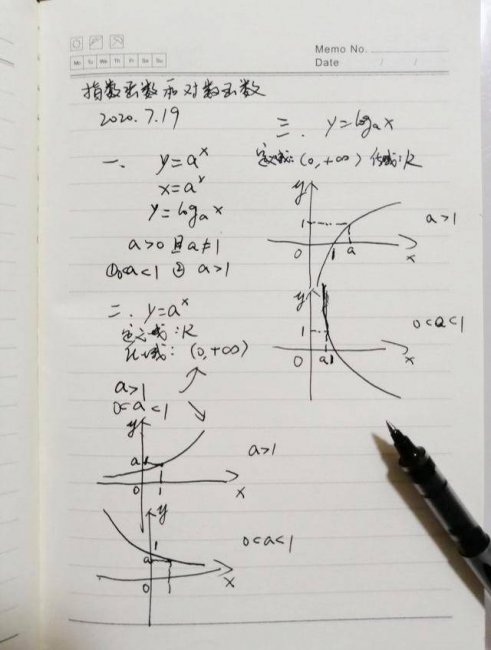 Memo No.
Mo Tu We Th Fr Sa Su
Date / /
指数函数和对数函数
2020.7.19
一. y=aˣ
x=aʸ
y=logₐx
a>0 且 a≠1
①0<a<1 ② a>1
二. y=aˣ
定义域:R
值域: (0,+∞)
a>1
0<a<1
y
a
0
1
x
a>1
y
1
a
0
x
0<a<1
三. y=logₐx
定义域:(0,+∞) 值域:R
y
1
0
1
a
x
a>1
y
1
0
a
1
x
0<a<1